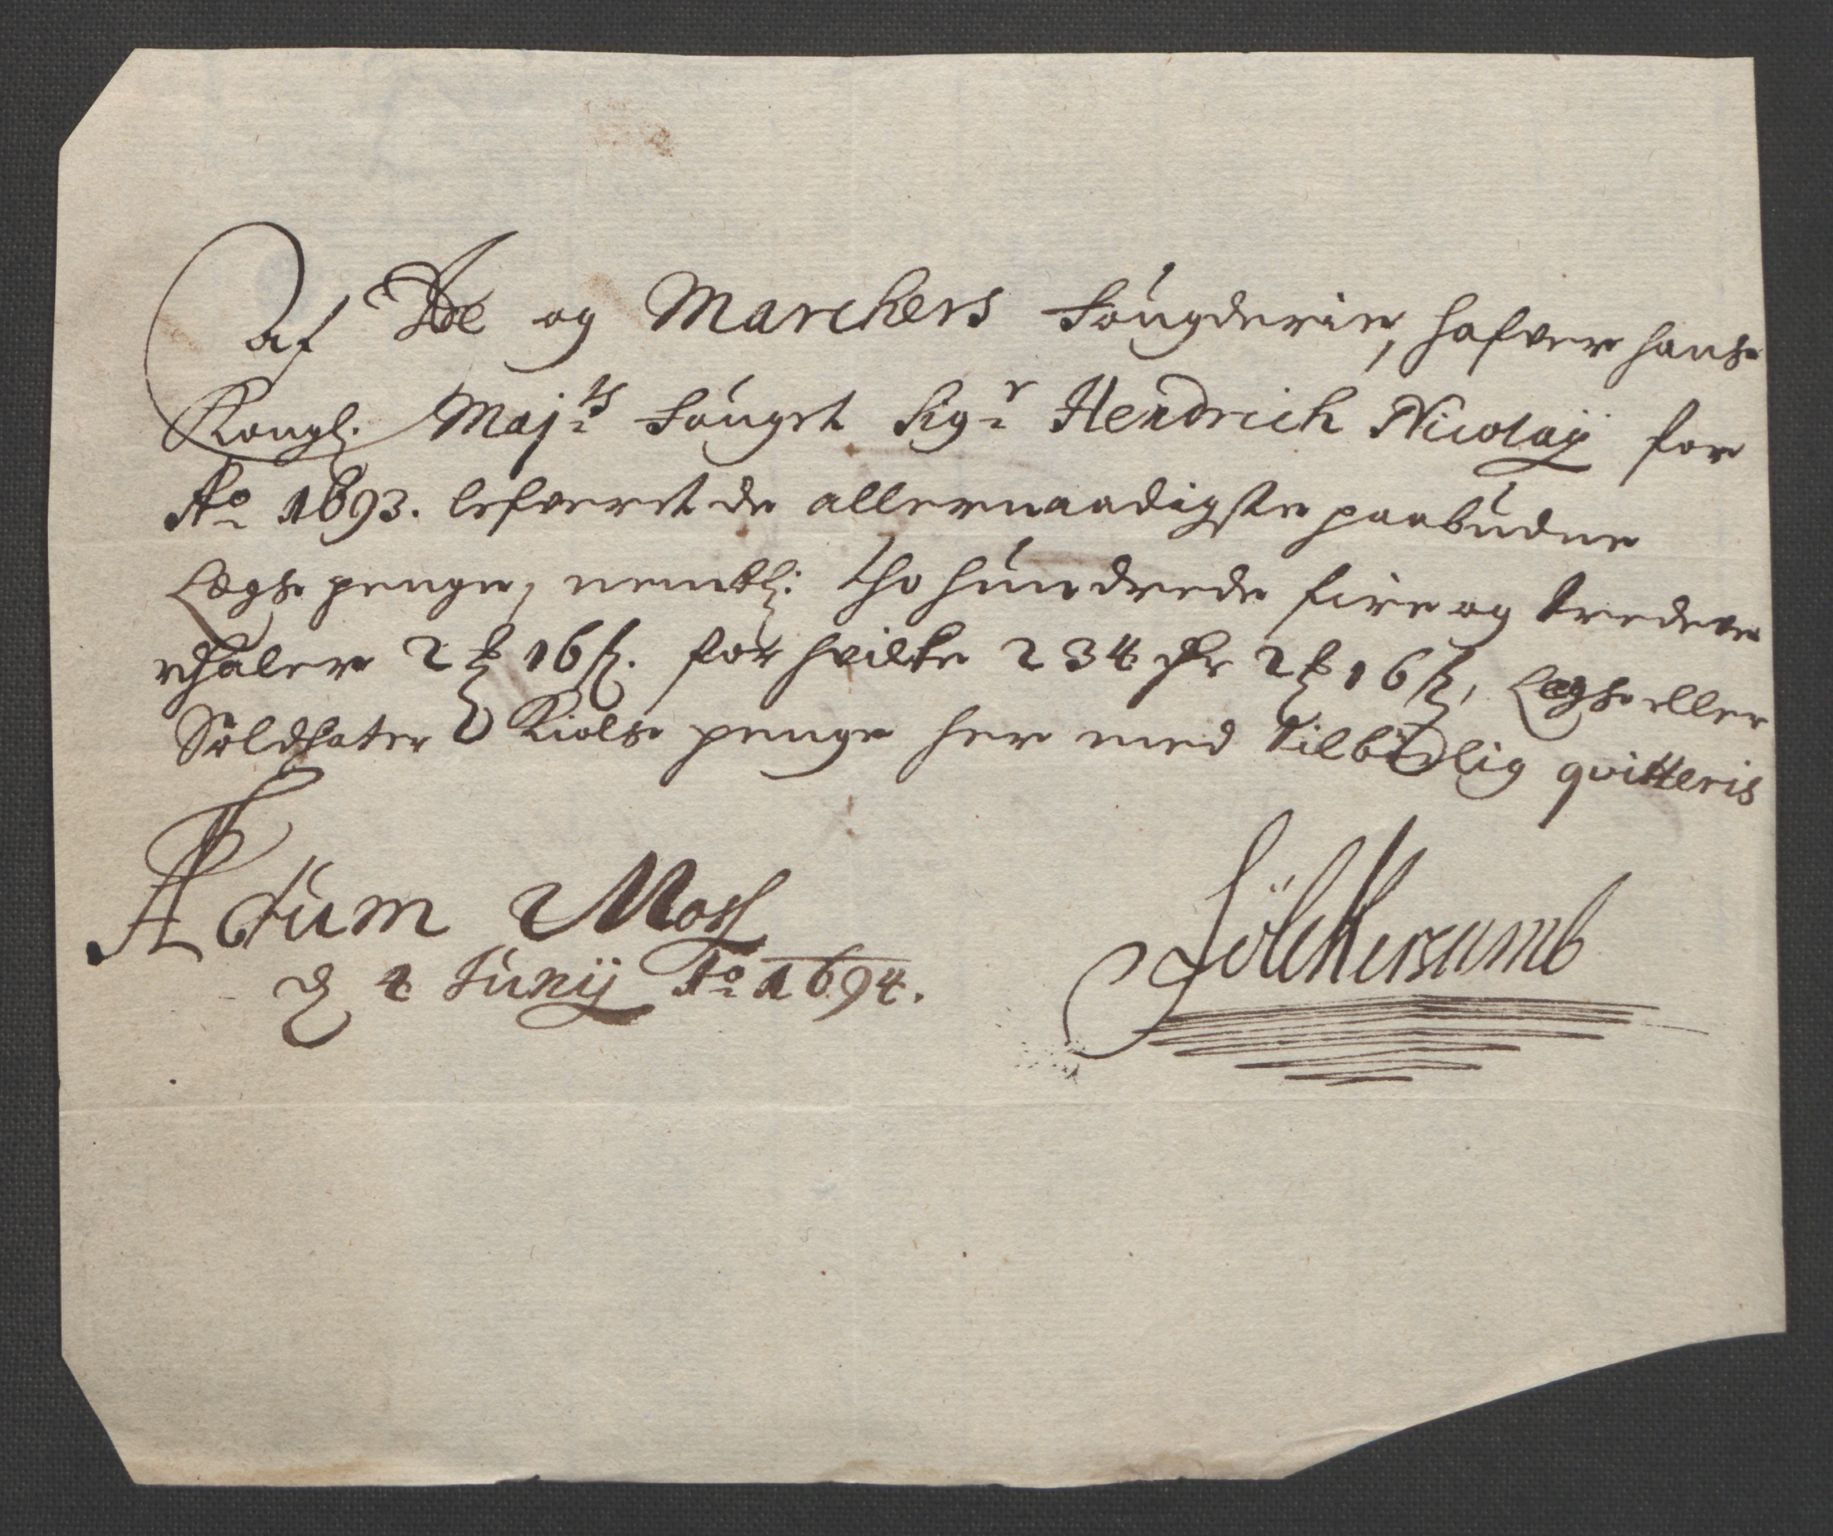 Af Ide og Marchers Fougderie, hafver hans
Kongl: Maj:ts Fougt Sig:r Hendrich Nicolaÿ for
A:o 1693. lefveret de allernaadigste paabudne
Lægs penge, nembl: tho hundrede fire og tredeve
rdhaler 2 ẜ 16 ß. for hvilke 234 Dr 2 ẜ 16 ß, Lægs eller
Soldhater Kiols penge her med tilbørlig qvitteris
Actum Moss
d 4 Junij A:o 1694.